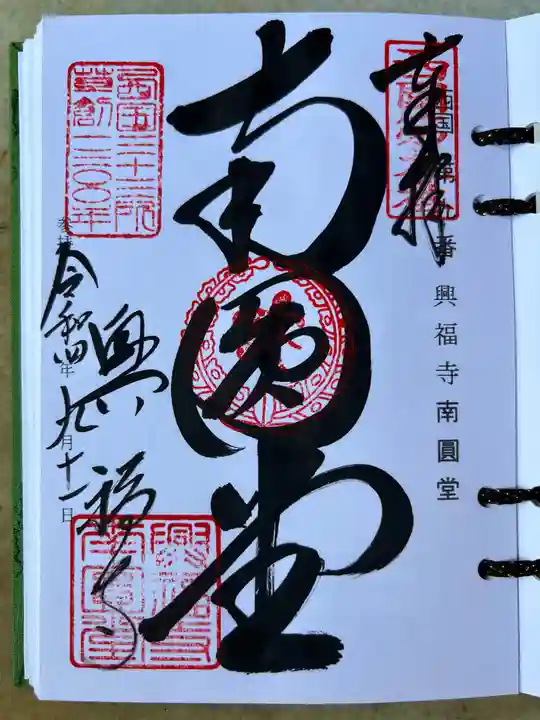 奉拝
西国 第九番 興福寺南圓堂
南圓堂
西国三十三所
草創一三〇〇年
興福寺
参拝 令和四年九月十一日
興福寺
南圓堂